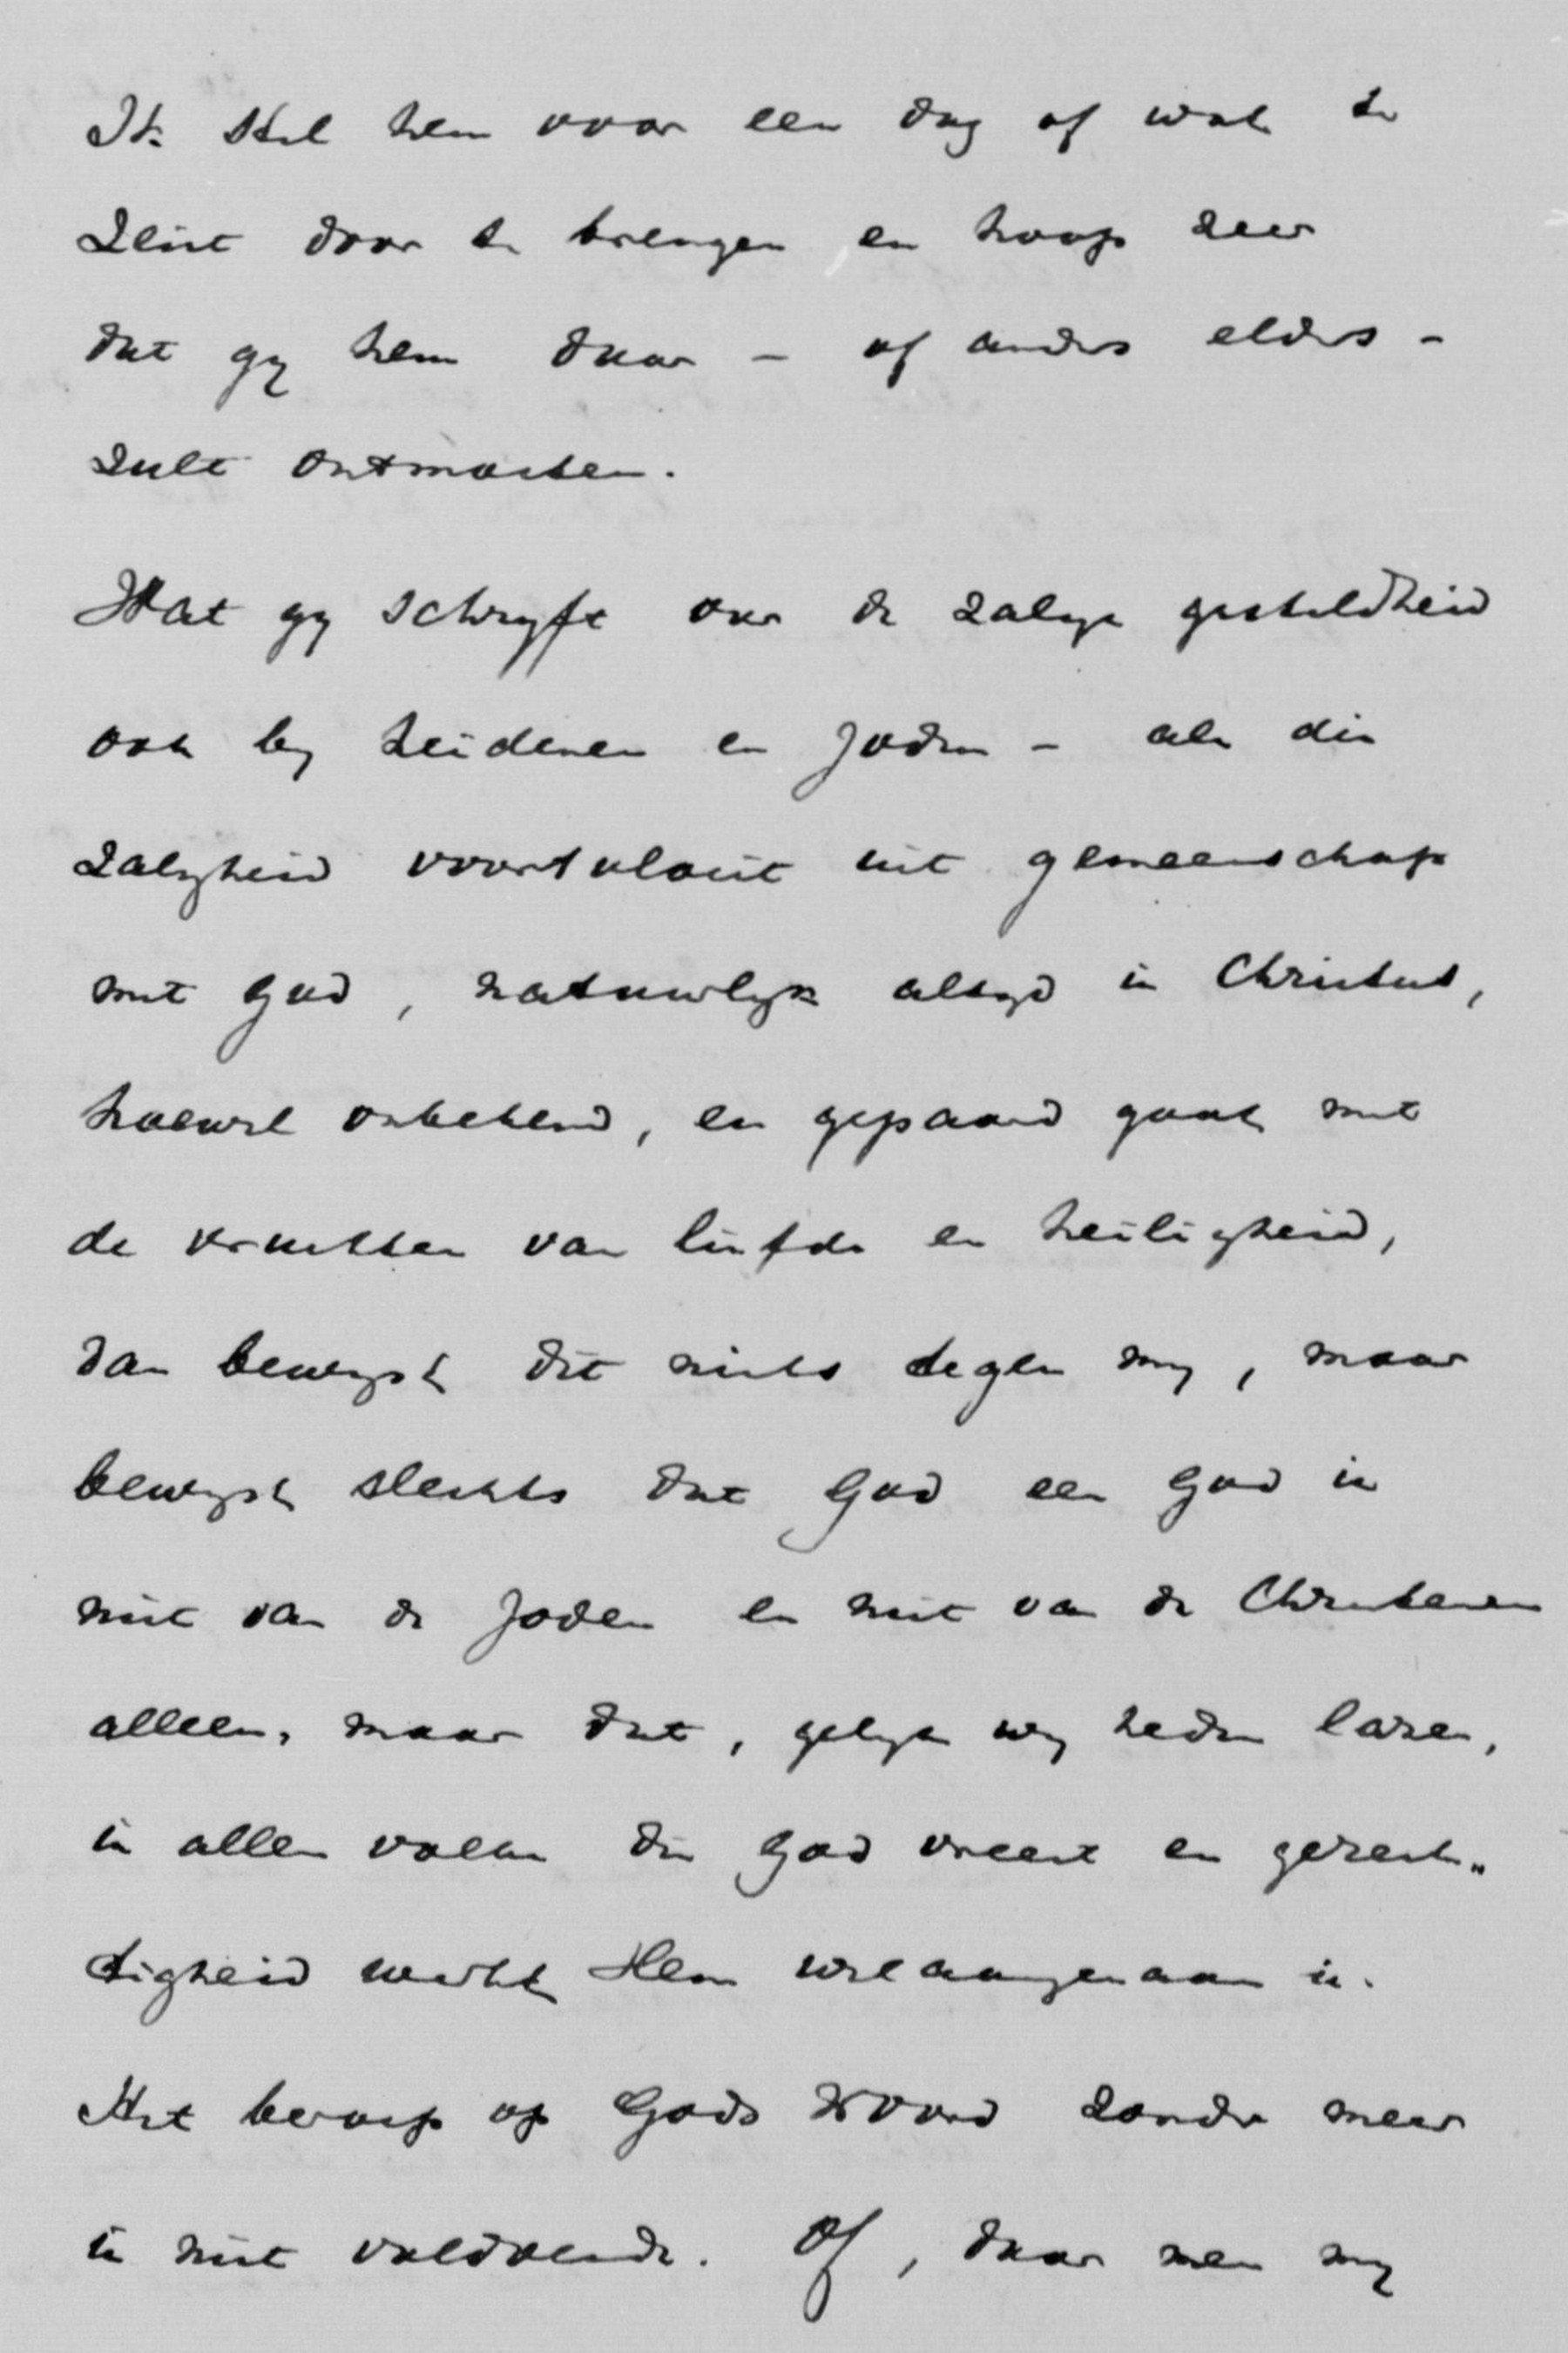 Ik stel hem voor een dag of wat te
Zeist door te brengen en hoop zeer
dat gy hem daar – of anders elders –
zult ontmoeten.
Wat gy schryft over de zalige gesteldheid
ook by heidenen en Joden – als die
zaligheid voortvloeit uit gemeenschap
met God, natuurlyk altyd in Christus,
hoewel onbekend, en gepaard gaat met
de vruchten van liefde en heiligheid,
dan bewyst dit niets tegen my, maar
bewyst slechts dat God een God is
niet van de Joden en niet van de Christenen
alleen, maar dat, gelyk wy heden lazen,
in allen volke die God vreest en gerech„
tigheid werkt Hem welaangenaam is.
Het beroep op Gods Woord zonder meer
is niet voldoende. Of, daar men my